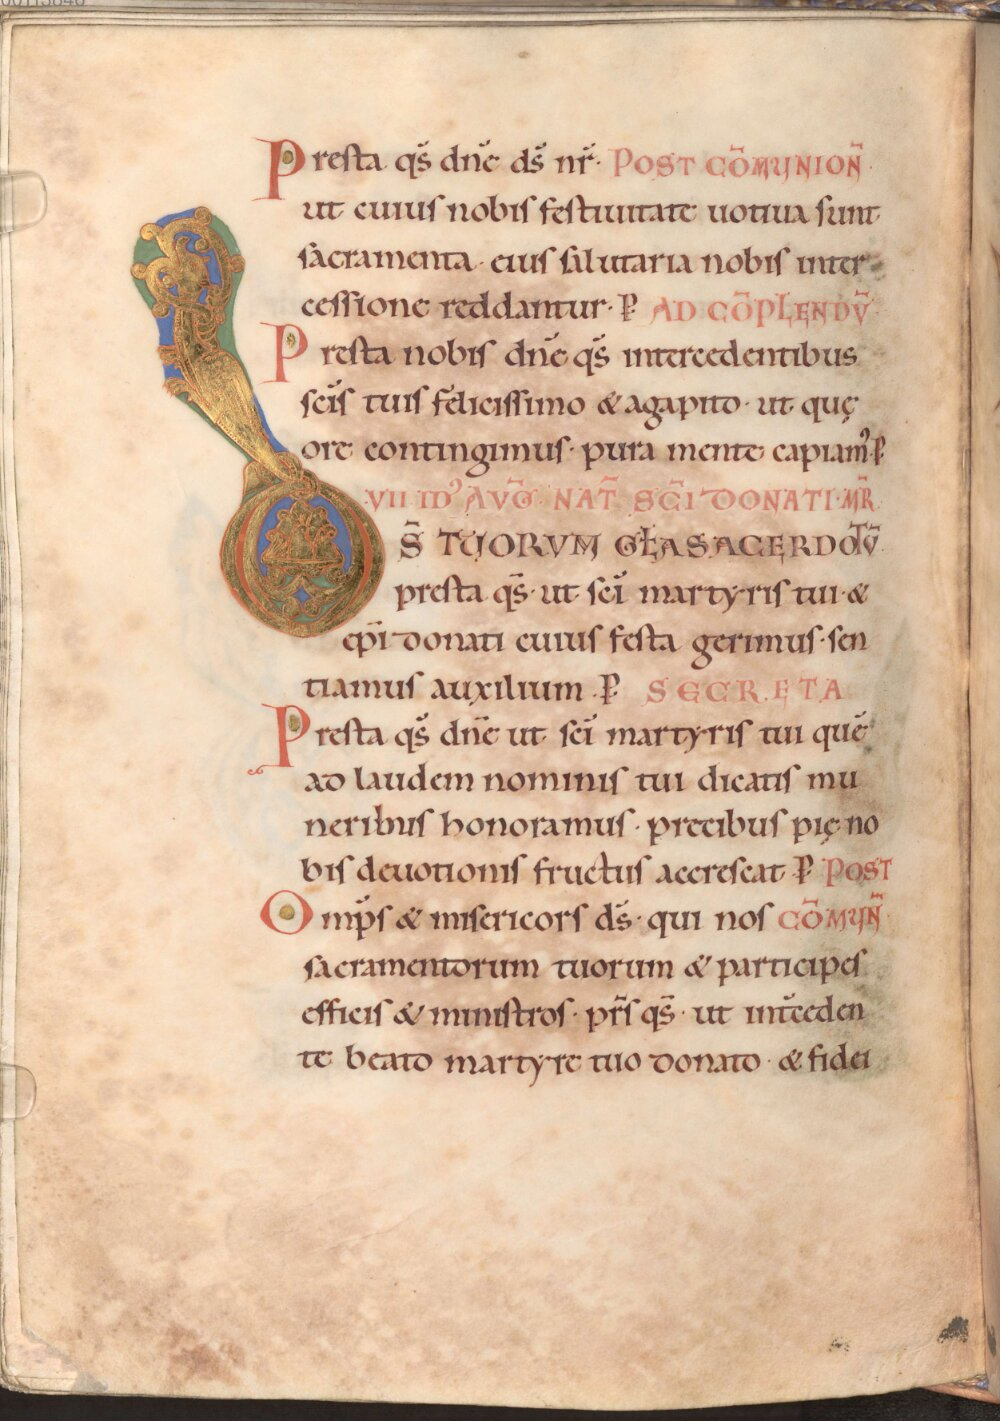 Presta qs̄ dn̄e ds̄ nr̄· POST CŌMUNION̄
ut cuius nobis festiuitate uotiua sunt
sacramenta· eius salutaria nobis inter
cessione reddantur· ꝑ AD CŌPLENDV̄
Presta nobis dn̄e qs̄ intercedentibus
scīs tuis felicissimo & agapito· ut quę
ore contingimus· pura mente capiam᾽ ꝑ
VII ID᾽ AVḠ NAT̄ SC̄I DONATI·MR̄
D̄S TUORVM GL̄A SACERDOTV̄
presta qs̄· ut scī martyris tui· &
ep̄i donati cuius festa gerimus· sen
tiamus auxilium· ꝑ SECRETA
Presta qs̄ dn̄e ut scī martyris tui quē
ad laudem nominis tui dicatis mu
neribus honoramus· precibus pię no
bis deuotionis fructus accrescat ꝑ POST
Omp̄s & misericors ds̄· qui nos CŌMUN̄
sacramentorum tuorum & participes
efficis & ministros· pr̄s qs̄· ut int̄ceden
te beato martyre tuo donato· & fidei